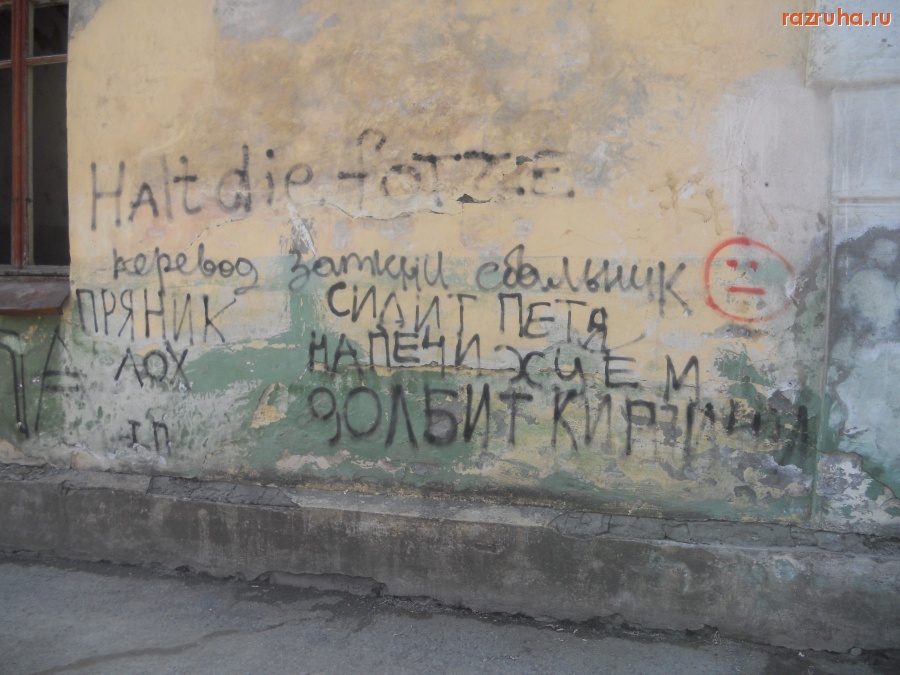 razruha.ru
Halt die fOTZE
перевод заткни ебальник
ПРЯНИК
ЛОХ
СИДИТ ПЕТЯ
НА ПЕЧИ ХУЕМ
дОЛБИТ КИРПИЧИ